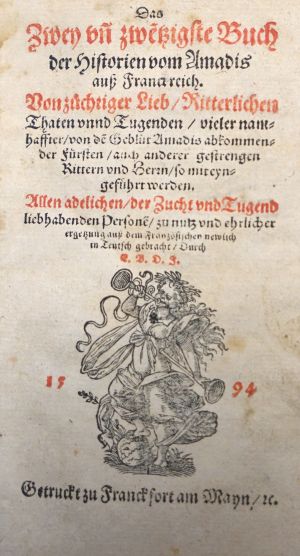 Das
Zwey vñ zwẽtzigste Buch
der Historien vom Amadis
auß Franckreich.
Von züchtiger Lieb / Ritterlichen
Thaten vnnd Tugenden / vieler nam-
haffter / von dẽ Geblüt Amadis abkommen-
der Fürsten / auch anderer gestrengen
Rittern vnd Herrn / so mit eyn-
geführt werden.
Allen adelichen / der Zucht vnd Tugend
liebhabenden Personẽ / zu nutz vnd ehrlicher
ergetzung auß dem Frantzösischen newlich
in Teutsch gebracht / Durch
E. B. D. J.
15 94
Getruckt zu Franckfort am Mayn / ꝛc.